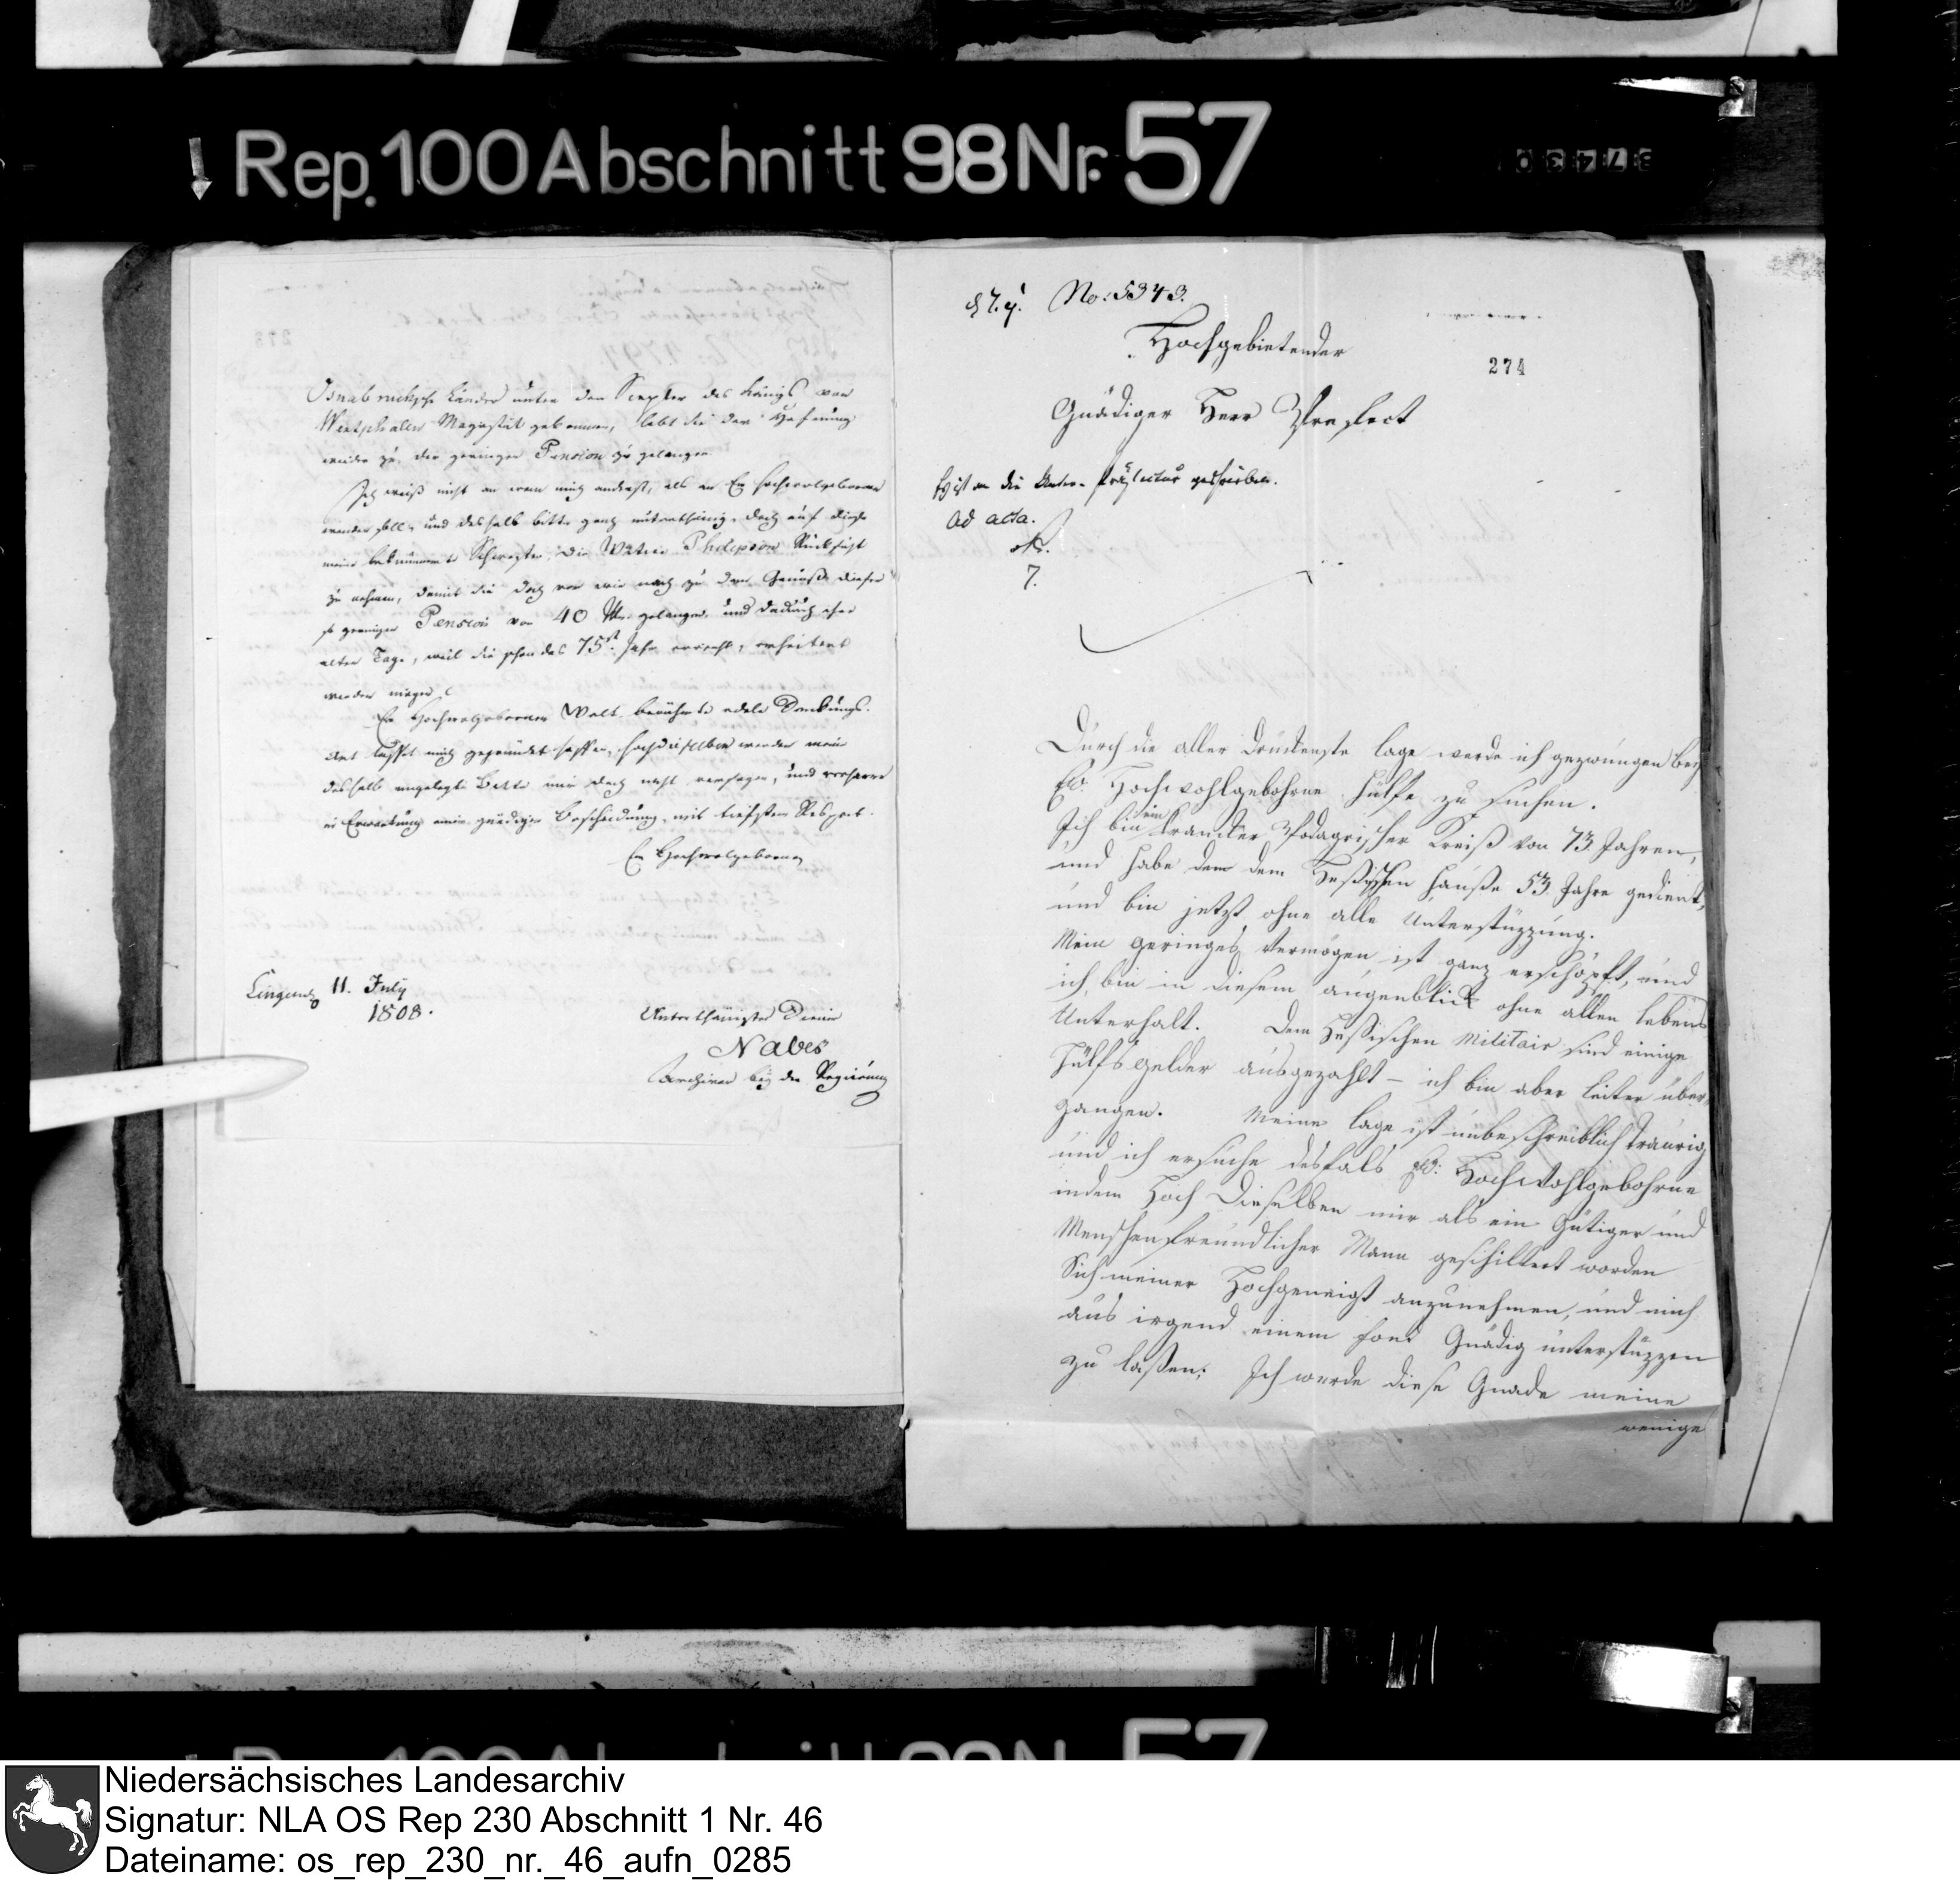 Rep. 100 Abschnitt 98 Nr. 57
Osnabrücksche Länder unter den Scepter des Königs von
Westphalen Majestät gekommen, lebt sie der Hofnung
wieder zu der geringen Pension zu gelangen
Ich weiß nicht an wem mich anders, als an Ew Hochwolgebornen
wenden soll, und deshalb bitte ganz unterthänig, doch auf diese
meine bekümmerte Schwester die Witwe Philipson Rücksicht
zu nehmen, damit sie doch vor wie nach zu dem Genuße dieser
so geringen Pension von 40 gelangen, und dadurch ihre
alten Tage, weil sie schon das 75st. Jahr erreicht, erheitert
werden mögen
Ew Hochwolgebornen Welt berühmte edele Denkungs-
Art lässet mich gegründet hoffen, Hochdieselben werden meine
deshalb angelegte Bitte mir doch nicht versagen, und verharre
in Erwartung einer gnädigen Bescheidung, mit tiefstem Respect
Ew Hochwolgebornen
Lingen 11. July
1808.
Unterthänigster Diener
Naves
Archivar bey der Regierung
No: 5343.
274
Hochgebietender
Gnädiger Herr Prefect
Es ist an die Unter-Präfectur geschrieben.
Ad acta.
7.
Durch die aller Drückenste lage werde ich gezwungen bey
Ew. Hochwohlgebohrne Hülfe zu suchen.
Ich bin ein kranker Podagrischer Kreiß von 73. Jahren,
und habe dem dem Heßischen Hauße 53. Jahre gedient,
und bin jetzt ohne alle Unterstüzzung.
Mein geringes Vermögen ist ganz erschöpft, und
ich bin in diesem augenblick ohne allen lebens
Unterhalt. Dem Heßischen Militair sind einige
Hülfsgelder ausgezahlt – ich bin aber leiter über-
gangen. Meine lage ist unbeschreiblich traurig
und ich ersuche desfals Ew: Hochwohlgebohrne
indem Hoch Dieselben mir als ein Gütiger und
Menschenfreundlicher Mann geschiltert worden
Sich meiner Hochgeneigt anzunehmen, und mich
aus irgend einem fond Gnädig unterstüzzen
zu laßen; Ich werde diese Gnade meine
wenige
Niedersächsisches Landesarchiv
Signatur: NLA OS Rep 230 Abschnitt 1 Nr. 46
Dateiname: os_rep_230_nr._46_aufn_0285